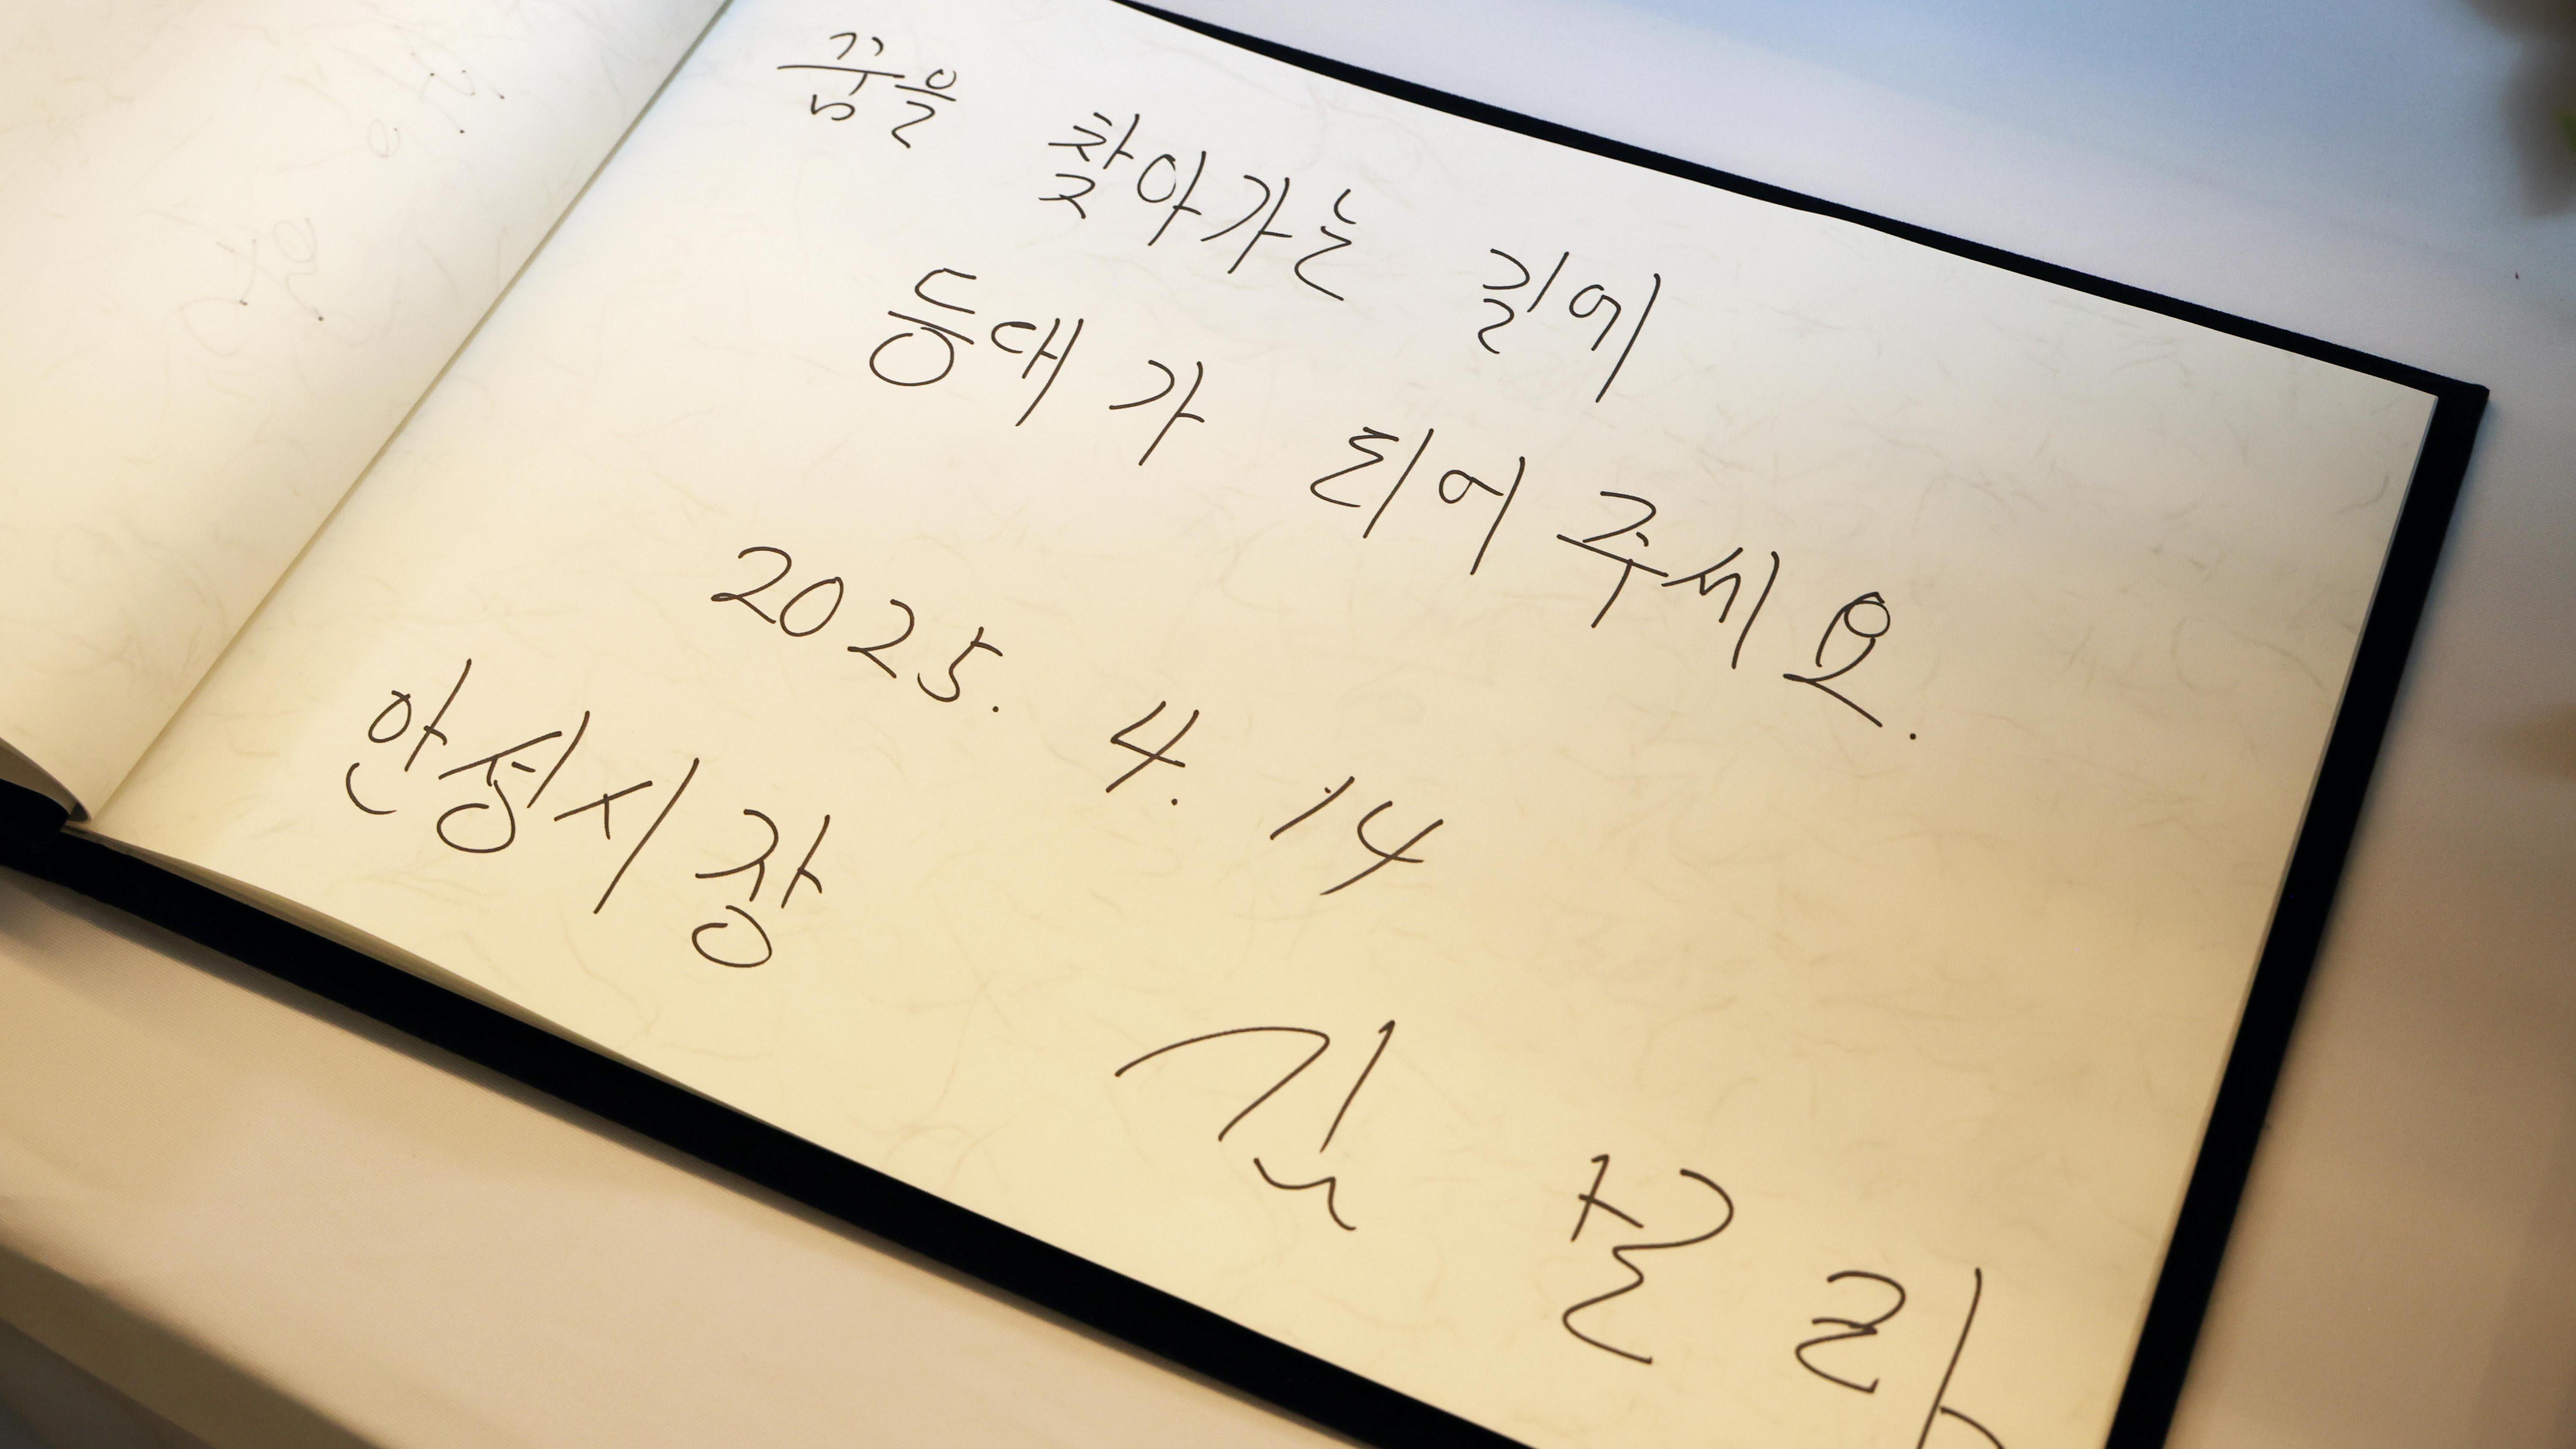 꿈을 찾아가는 길에
등대가 되어주세요.
2025. 4. 14
안성시장
김보라